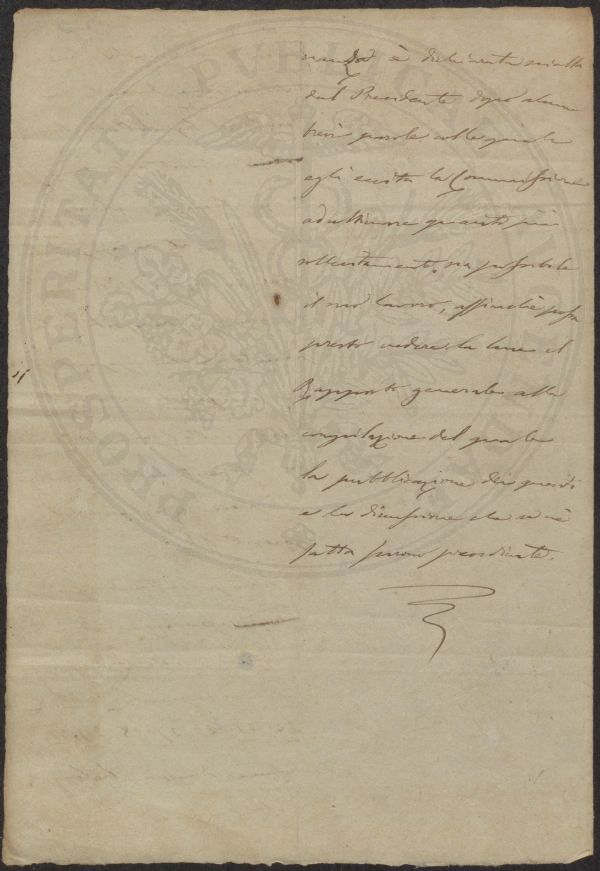 è dichiarata sciolta
dal Presidente dopo alcune
brevi parole colle quali
egli eccita la Commissione
ad ultimare quanto più
sollecitamente sia possibile
il suo lavoro, affinchè possa
presto vedere la luce il
Rapporto generale alla
compilazione del quale
la pubblicazione dei quesiti
e la discussione che se n'è
fatta furono preordinate.
PROSPERITATI PUBLICAE AUGENDAE